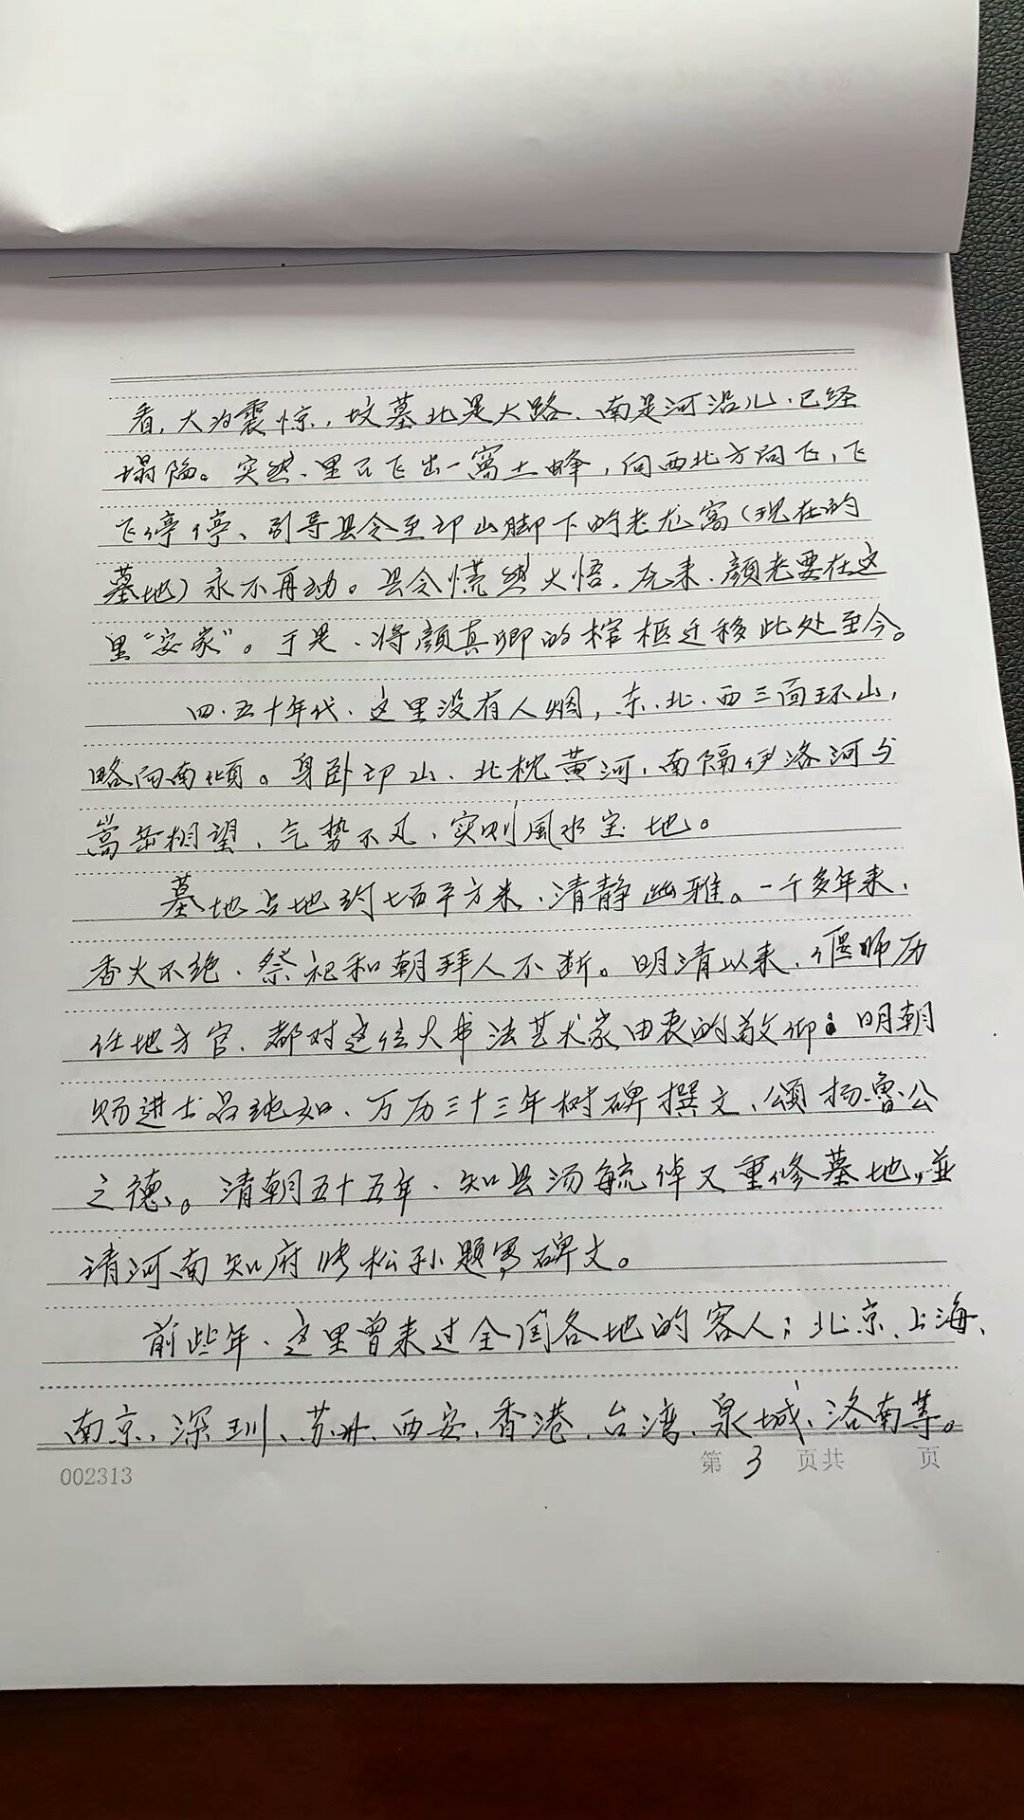 看,大为震惊,坟墓北是大路、南是河沿儿、已经
塌陷。突然、里面飞出一窝土蜂,向西北方向飞,飞
飞停停、引导县令至邙山脚下的老龙窝(现在的
墓地)永不再动。县令慌然大悟,原来、颜老要在这
里“安家”。于是、将颜真卿的棺柩迁移此处至今。
四、五十年代、这里没有人烟,东、北、西三面环山,
略向南倾。身卧邙山、北枕黄河,南隔伊洛河与
嵩岳相望、气势不凡、实则風水宝地。
墓地占地约七百平方米、清静幽雅。一千多年来、
香火不绝、祭祀和朝拜人不断。明清以来、偃师历
任地方官、都对这位大书法艺术家由衷的敬仰:明朝
赐进士吕纯如、万历三十三年树碑撰文、颂扬鲁公
之德。清朝五十五年、知县汤毓倬又重修墓地,並
请河南知府张松孙题写碑文。
前些年、这里曾来过全国各地的客人;北京、上海、
南京、深圳、苏州、西安、香港、台湾、泉城、洛南等。
002313 第 3 页共 页